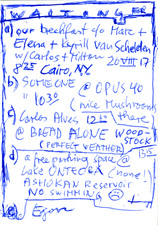 WAITING ER
a) our breakfast f/o Marc +
Elena + Kyrill van Schelden
w/Carlos + Milton 20 VIII 17
8 25 Cairo, NY
b) SOMEONE @ OPUS 40
"103° nice Mushrooms
c) Carlos Alves 12 15 there
@ BREAD ALONE WOOD-
(PERFECT WEATHER) STOCK
d) a free parking space @
Lake ONTEORA (none!)
ASHOKAN Reservoir
NO SWIMMING
e) Egon